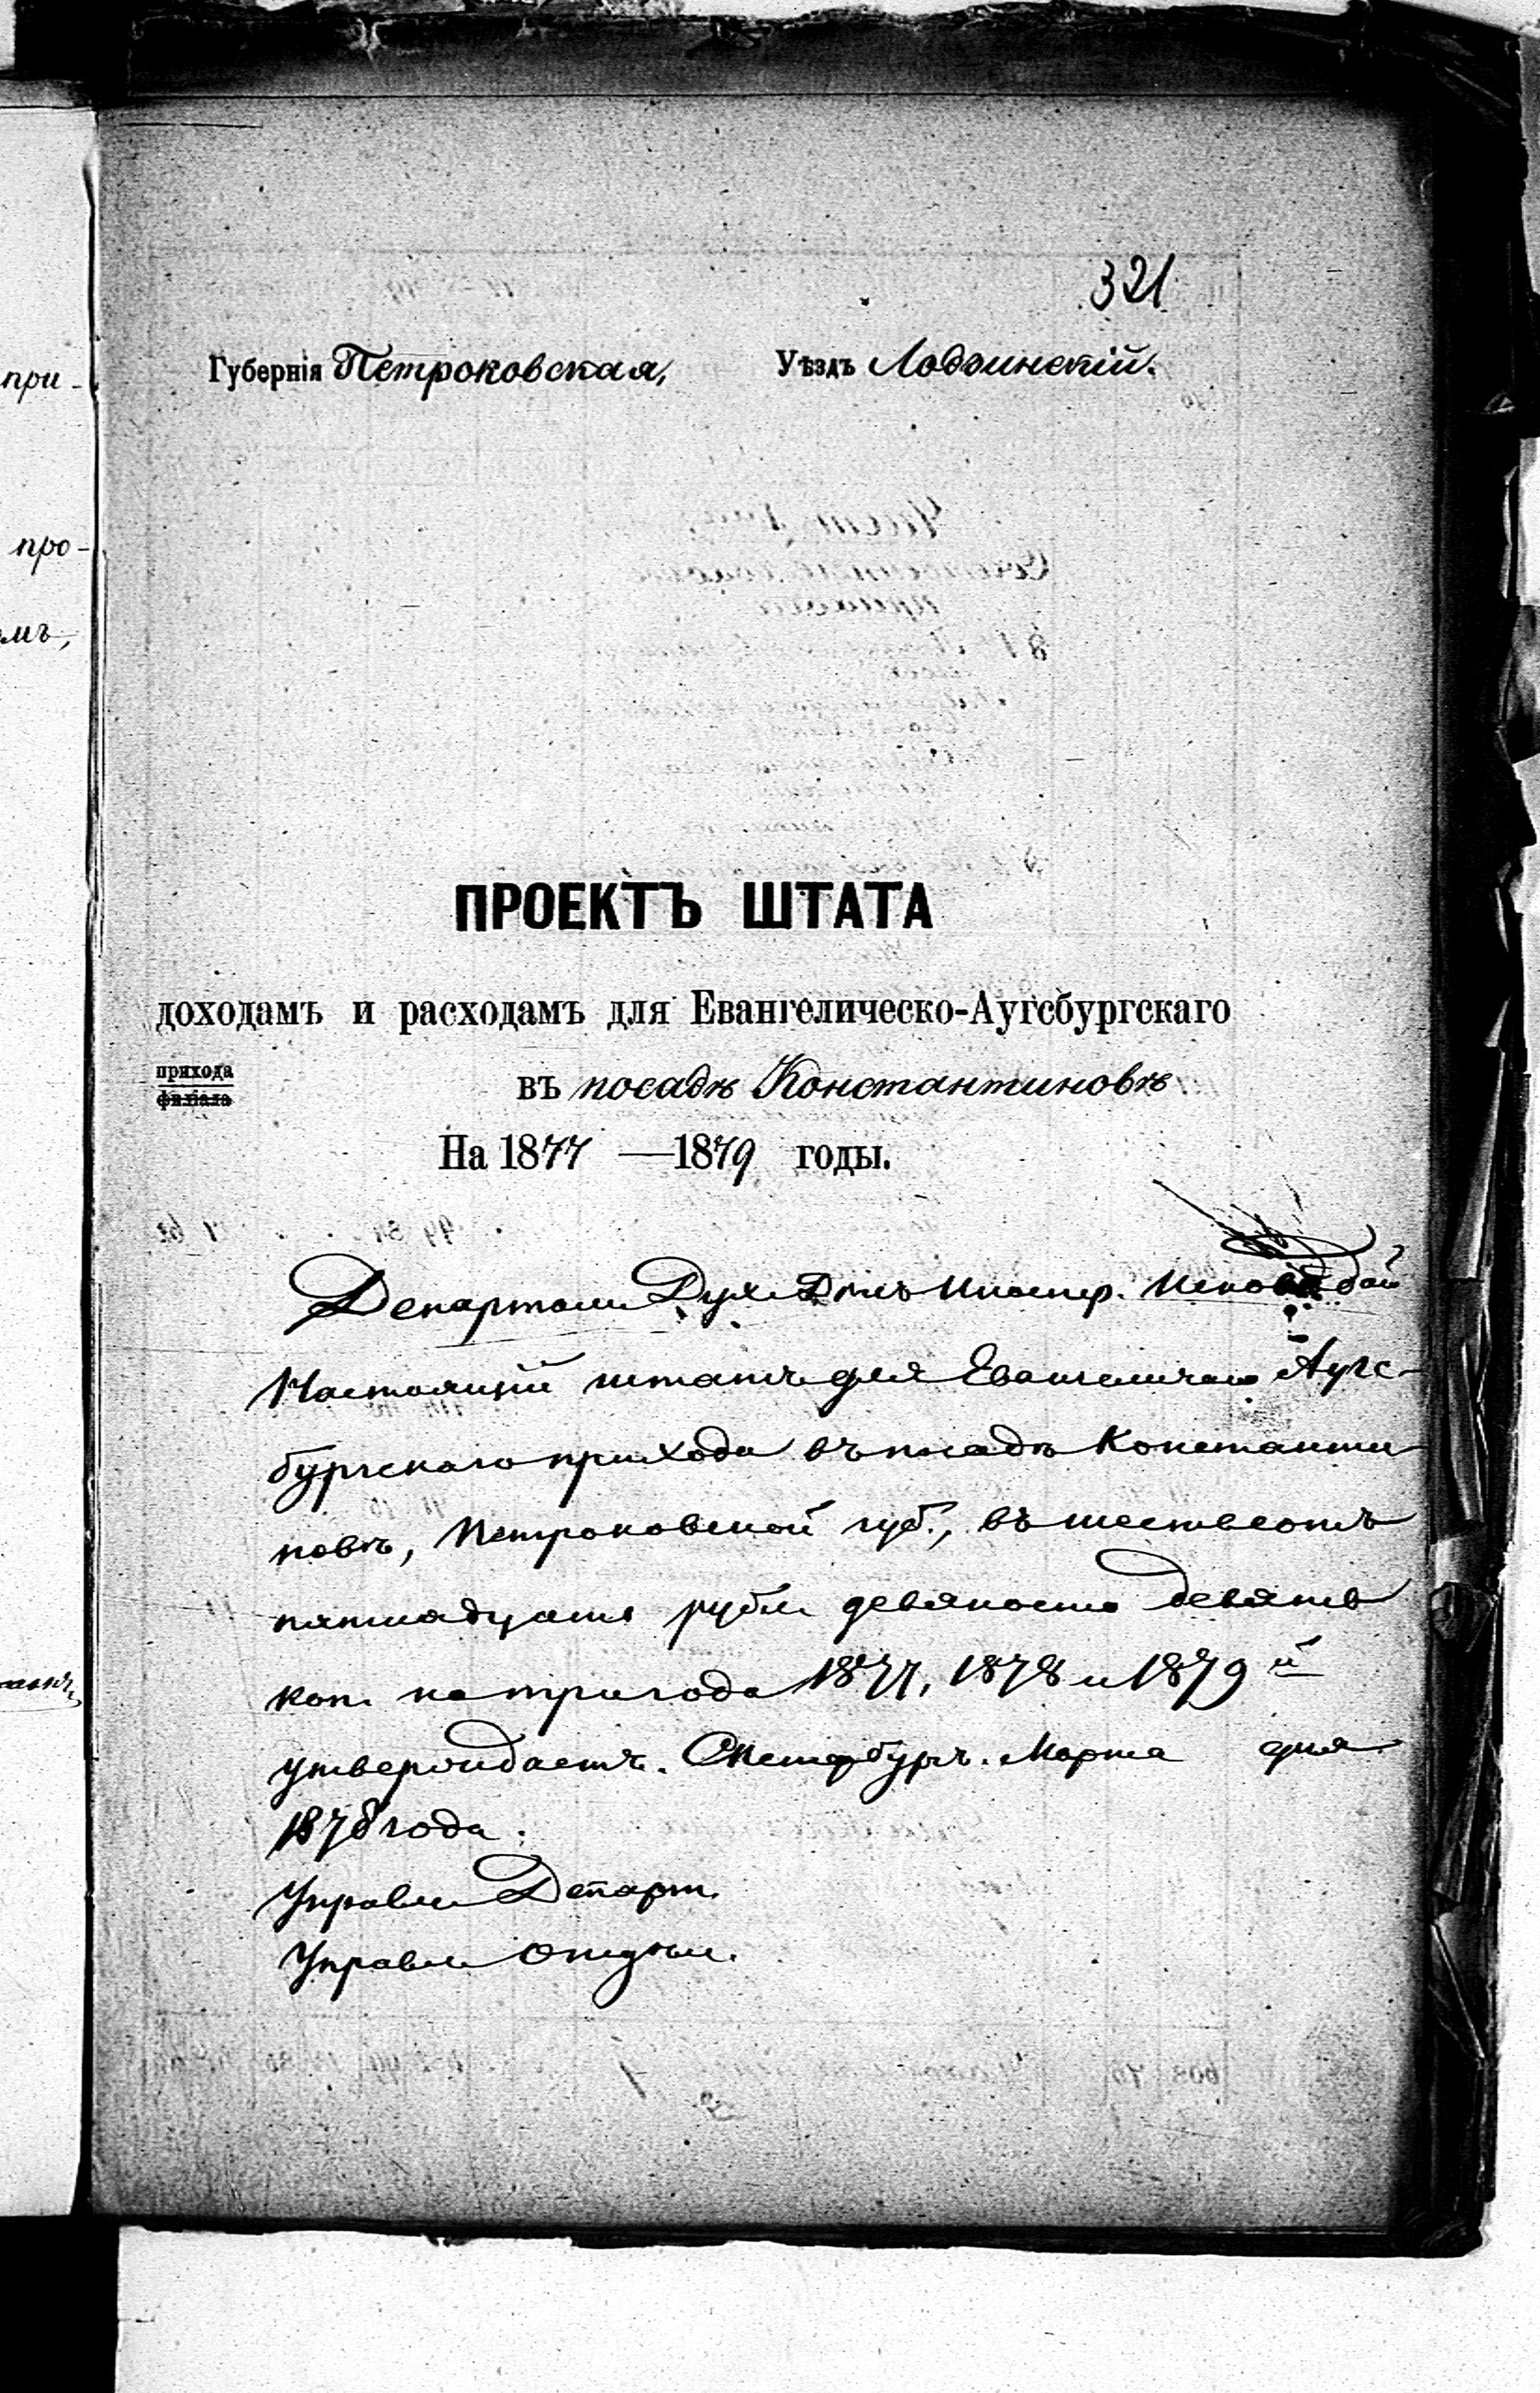 321
Губернія Петроковская, Уѣздъ Лодзинскій.
при-
про-
мъ,
ПРОЕКТЪ ШТАТА
доходамъ и расходамъ для Евангелическо-Аугсбургскаго
прихода
филіала
въ посадѣ Константиновѣ
На 1877 —1879 годы.
Департам Дух. Дѣлъ Иностр. Исповѣдай
Настоящій штатъ для Евангелическо Аугс-
бургскаго прихода въ посадѣ Константи
новѣ, Петроковской губ., въ шестьсотъ
пятнадцать рубл. девяносто девять
коп. на три года 1877, 1878 и 1879 й
утверждаетъ. СПетербургъ. Марта дня
1878 года.
Управл Департ.
Управл Отдѣл.